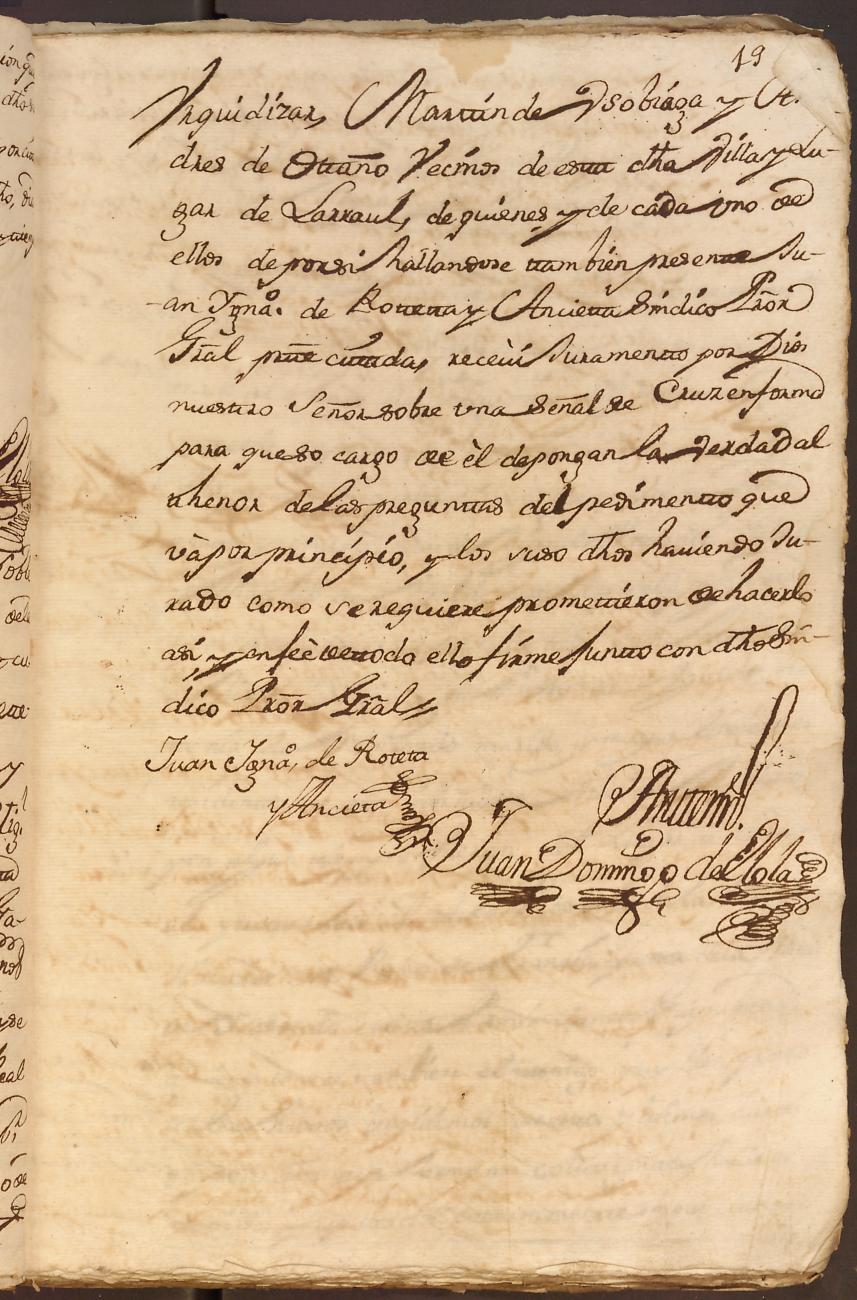 19
Urquidizar, Martin de Ysobiaga y An-
dres de Ottaño Vecinos de esta dha Villa y Lu-
gar de Larraul, de quienes y de cada uno de
ellos de por si hallandose tambien presente Ju-
-an Ignaº. de Rotetta y Ancietta Sindico Pror
Gral prte cittada, receui Juramento por Dios
nuestro Señor sobre una Señal de Cruz en forma
para que so cargo de èl depongan la Verdad al
thenor de las preguntas del pedimentto que
và por principio, y los suso dhos hauiendo Ju-
rado como se requiere promettieron de hacerlo
asi, y en feè de ttodo ello firme Juntto con dho Sin-
dico Pror Gral
Juan Ignaº, de Roteta
y Ancieta
Antte mi.
Juan Domingo de Olola